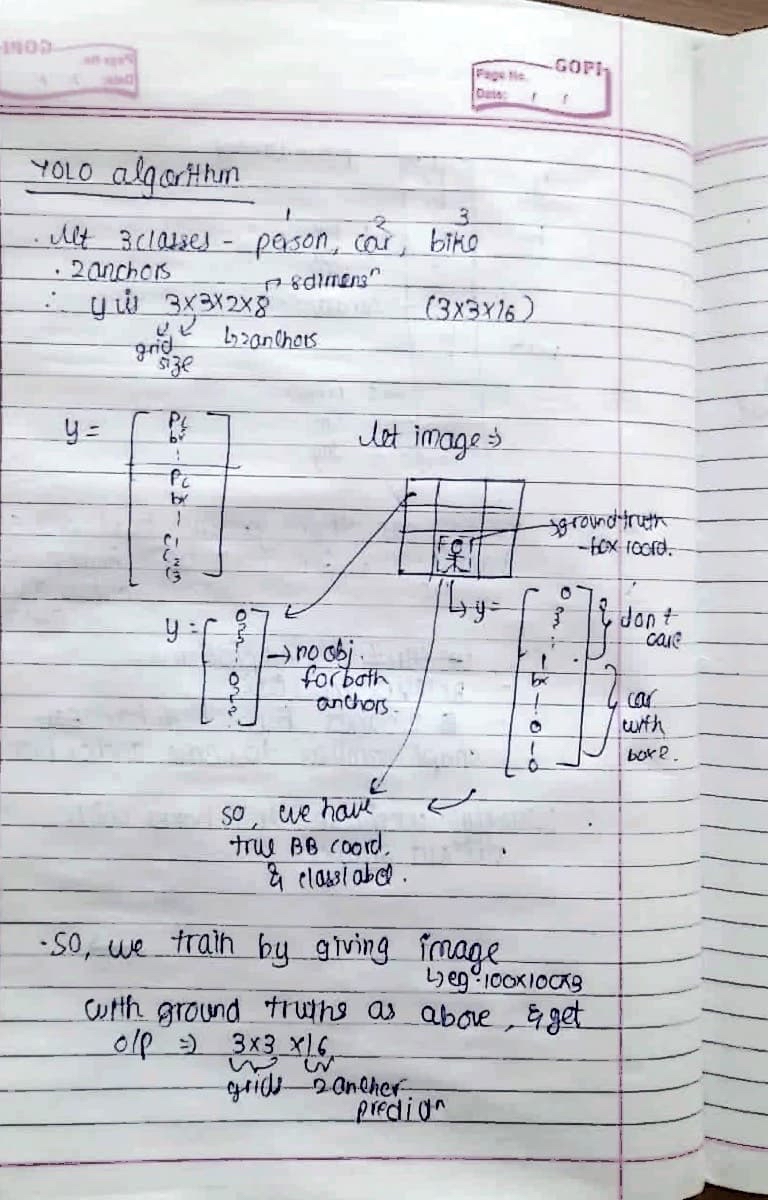 GOPI
Page No.
Date: / /
YOLO algorithm
. let 3 classes - person, car, bike
1 2 3
. 2 anchors
→ 8 dimensⁿ
∴ y is 3x3x2x8 (3x3x16)
grid size
↳ 2 anchors
y =
Pc
bx
⋮
Pc
bx
⋮
C1
C2
C3
let image ⇒
→ ground truth
- box coord.
y =
0
?
?
0
?
?
→ no obj.
for both
anchors.
↳ y =
0
?
⋮
1
bx
⋮
0
1
0
} don't
care
} car
with
box 2.
so, we have
true BB coord.
& class label.
. So, we train by giving image
↳ eg: 100x100x3
with ground truths as above, & get
o/p ⇒ 3x3 x16
grids 2 anchor
predicⁿ